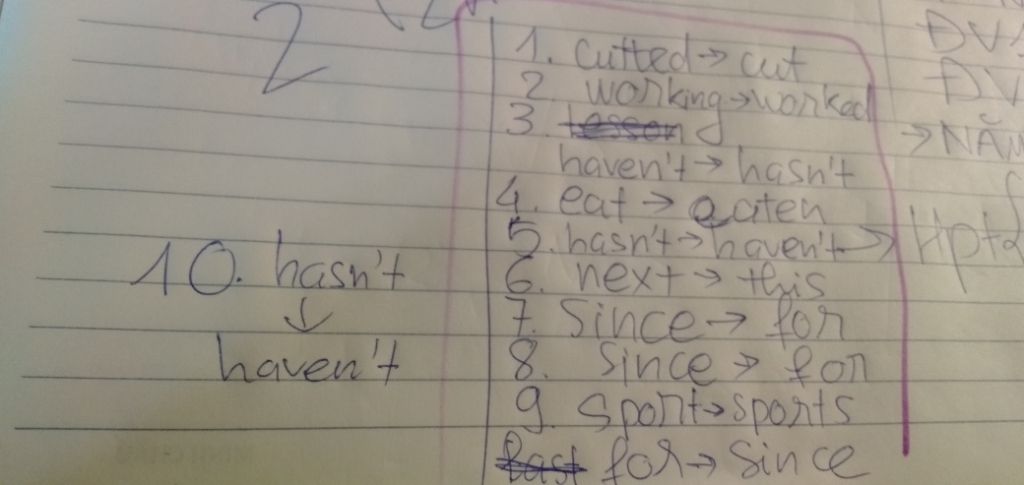 2
1. cutted → cut
2 working → worked
3.
haven't → hasn't
4. eat → eaten
5. hasn't → haven't →
6. next → this
7. Since → for
8. since → for
9. sport → sports
for → since
10. hasn't
↓
haven't
ĐV
→ NĂM